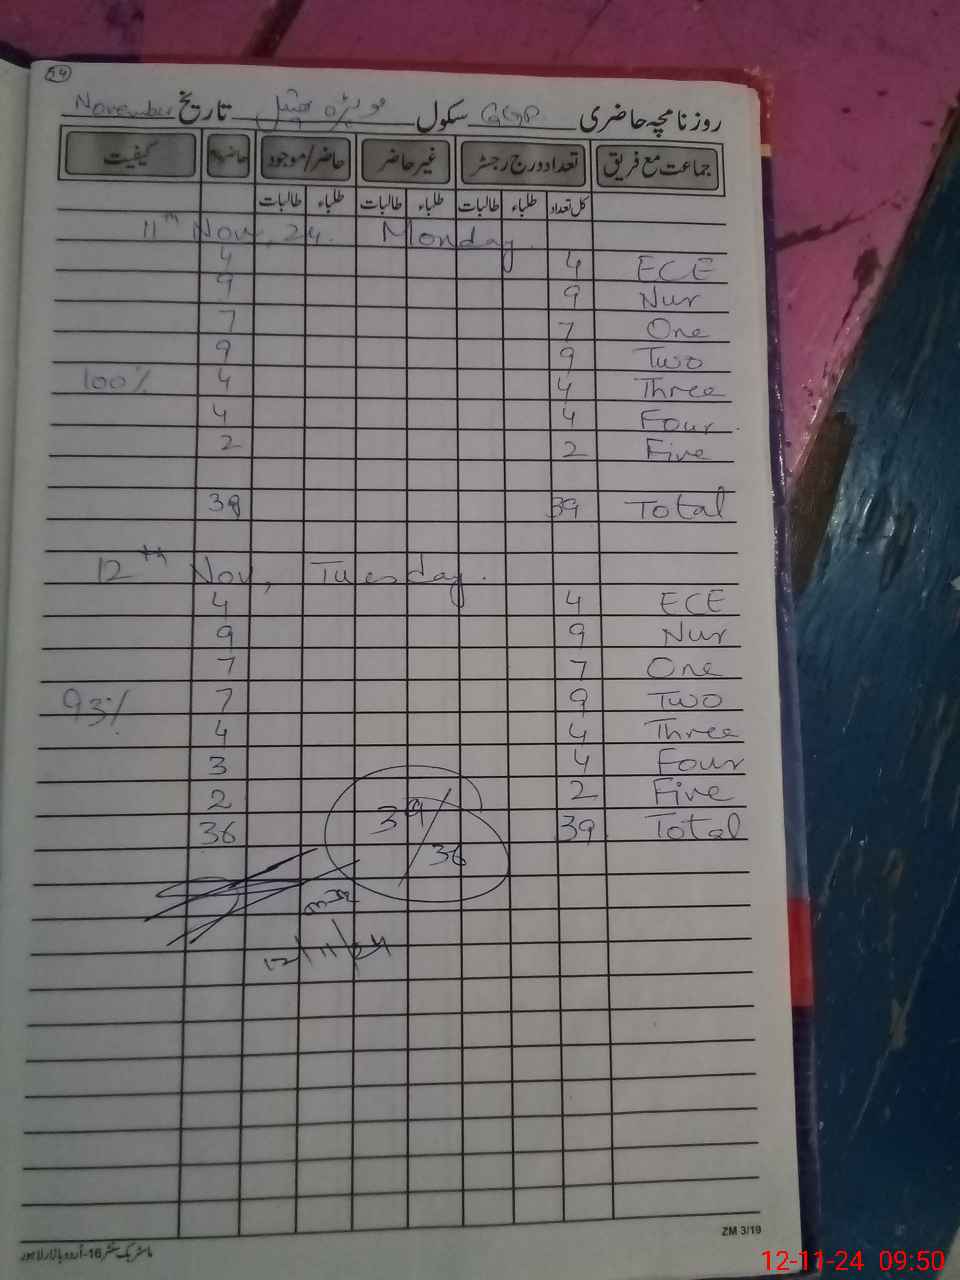 94
روزنامچہ حاضری GGP. سکول تاریخ November
جماعت مع فریق تعداد درج رجسٹر غیر حاضر حاضر/موجود کیفیت
کل تعداد طلباء طالبات طلباء طالبات طلباء طالبات
11th Nov, 24. Monday.
4 4 ECE
9 9 Nur
7 7 One
9 9 Two
100% 4 4 Three
4 4 Four.
2 2 Five
39 39 Total
12th Nov, Tuesday.
4 4 ECE
9 9 Nur
7 7 One
93% 7 9 Two
4 4 Three
3 4 Four
2 2 Five
36 39 Total
39/36
12/11/24
ZM 3/19
12-11-24 09:50